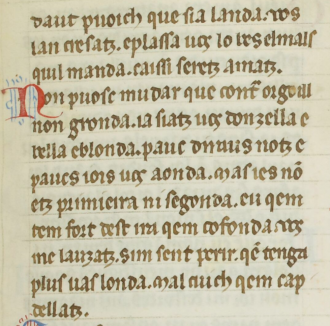 daut puoich que sia landa. vos
lan creisatz. e plassa uos lo ves el mais
quil manda. caissi seretz amatz.
Non puosc mudar que contr orgoill
non gronda. ia siatz uos donzella e
bella e blonda. pauc dnuus notz e
paucs iois uos aonda. mas ies nō
etz primieira ni segonda. eu qem
tem fort dest ira qem cofonda. uos
me lauzatz. sim sent perir. qē tenga
plus uas londa. mal cuich qem cap
dellatz.